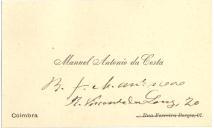 Manuel Antonio da Costa
B. J.
R. Visconde da Luz, 20
Coimbra
Rua Ferreira Borges, 91